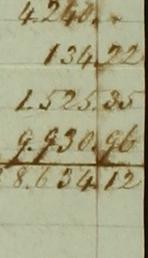 4.240. "
134.22
1.525.35
9.930.96
8.634.12